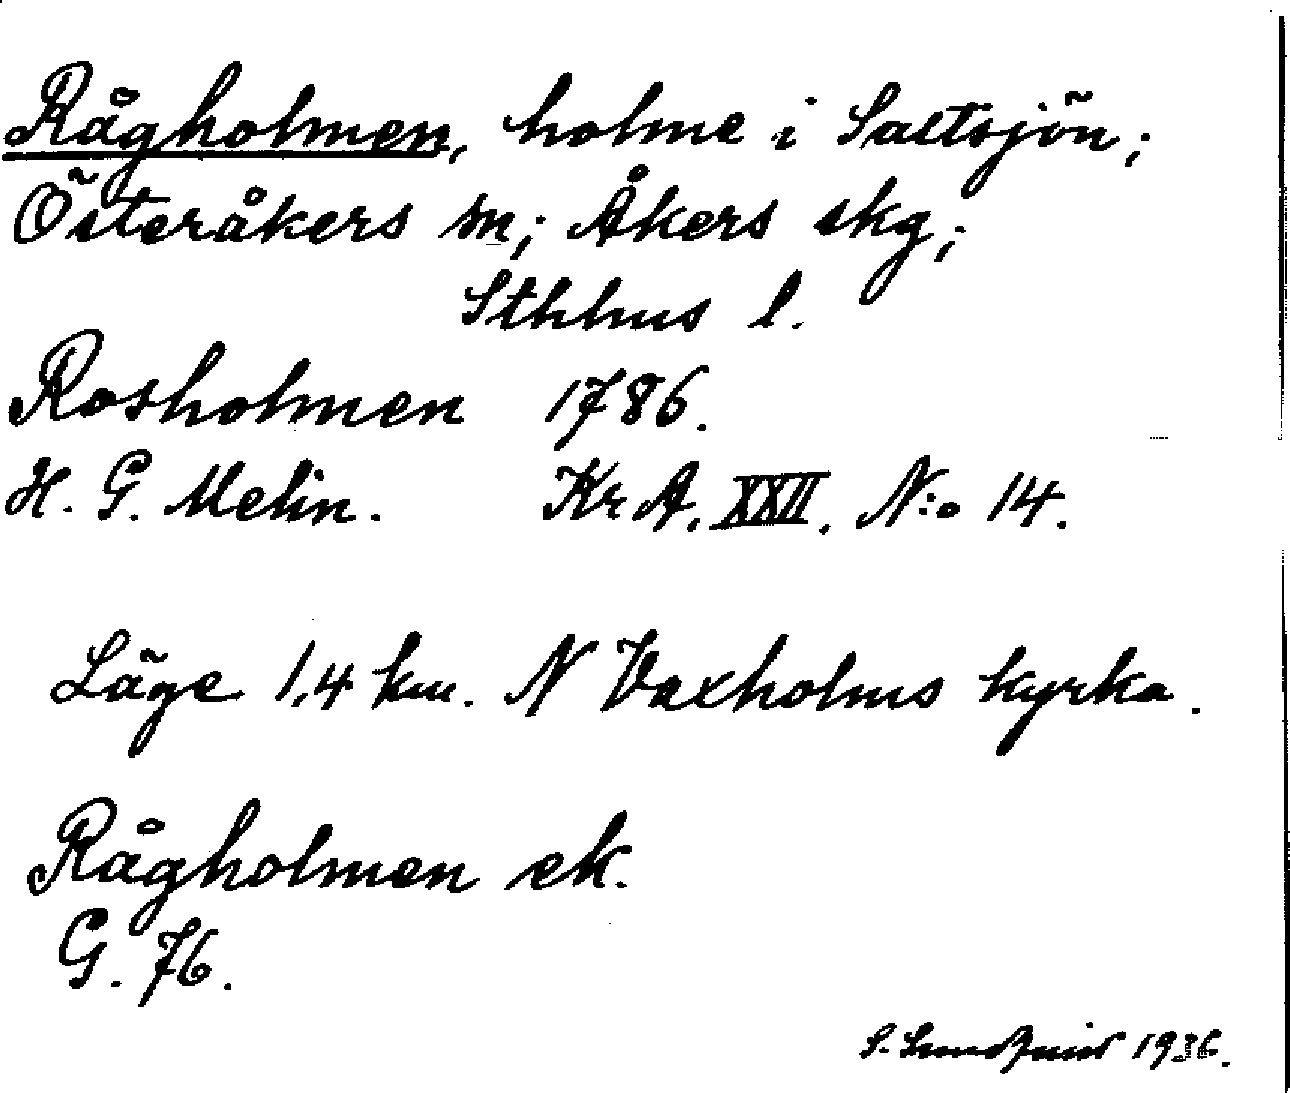 Rågholmen, holme i Saltsjön;
Österåkers sn; Åkers skg;
Sthlms l.
Rosholmen 1786.
H. G. Melin. Kr A. XXII. N:o 14.
Läge 1,4 km. N Vaxholms kyrka.
Rågholmen ek.
G. 76.
S. Lundqvist 1936.